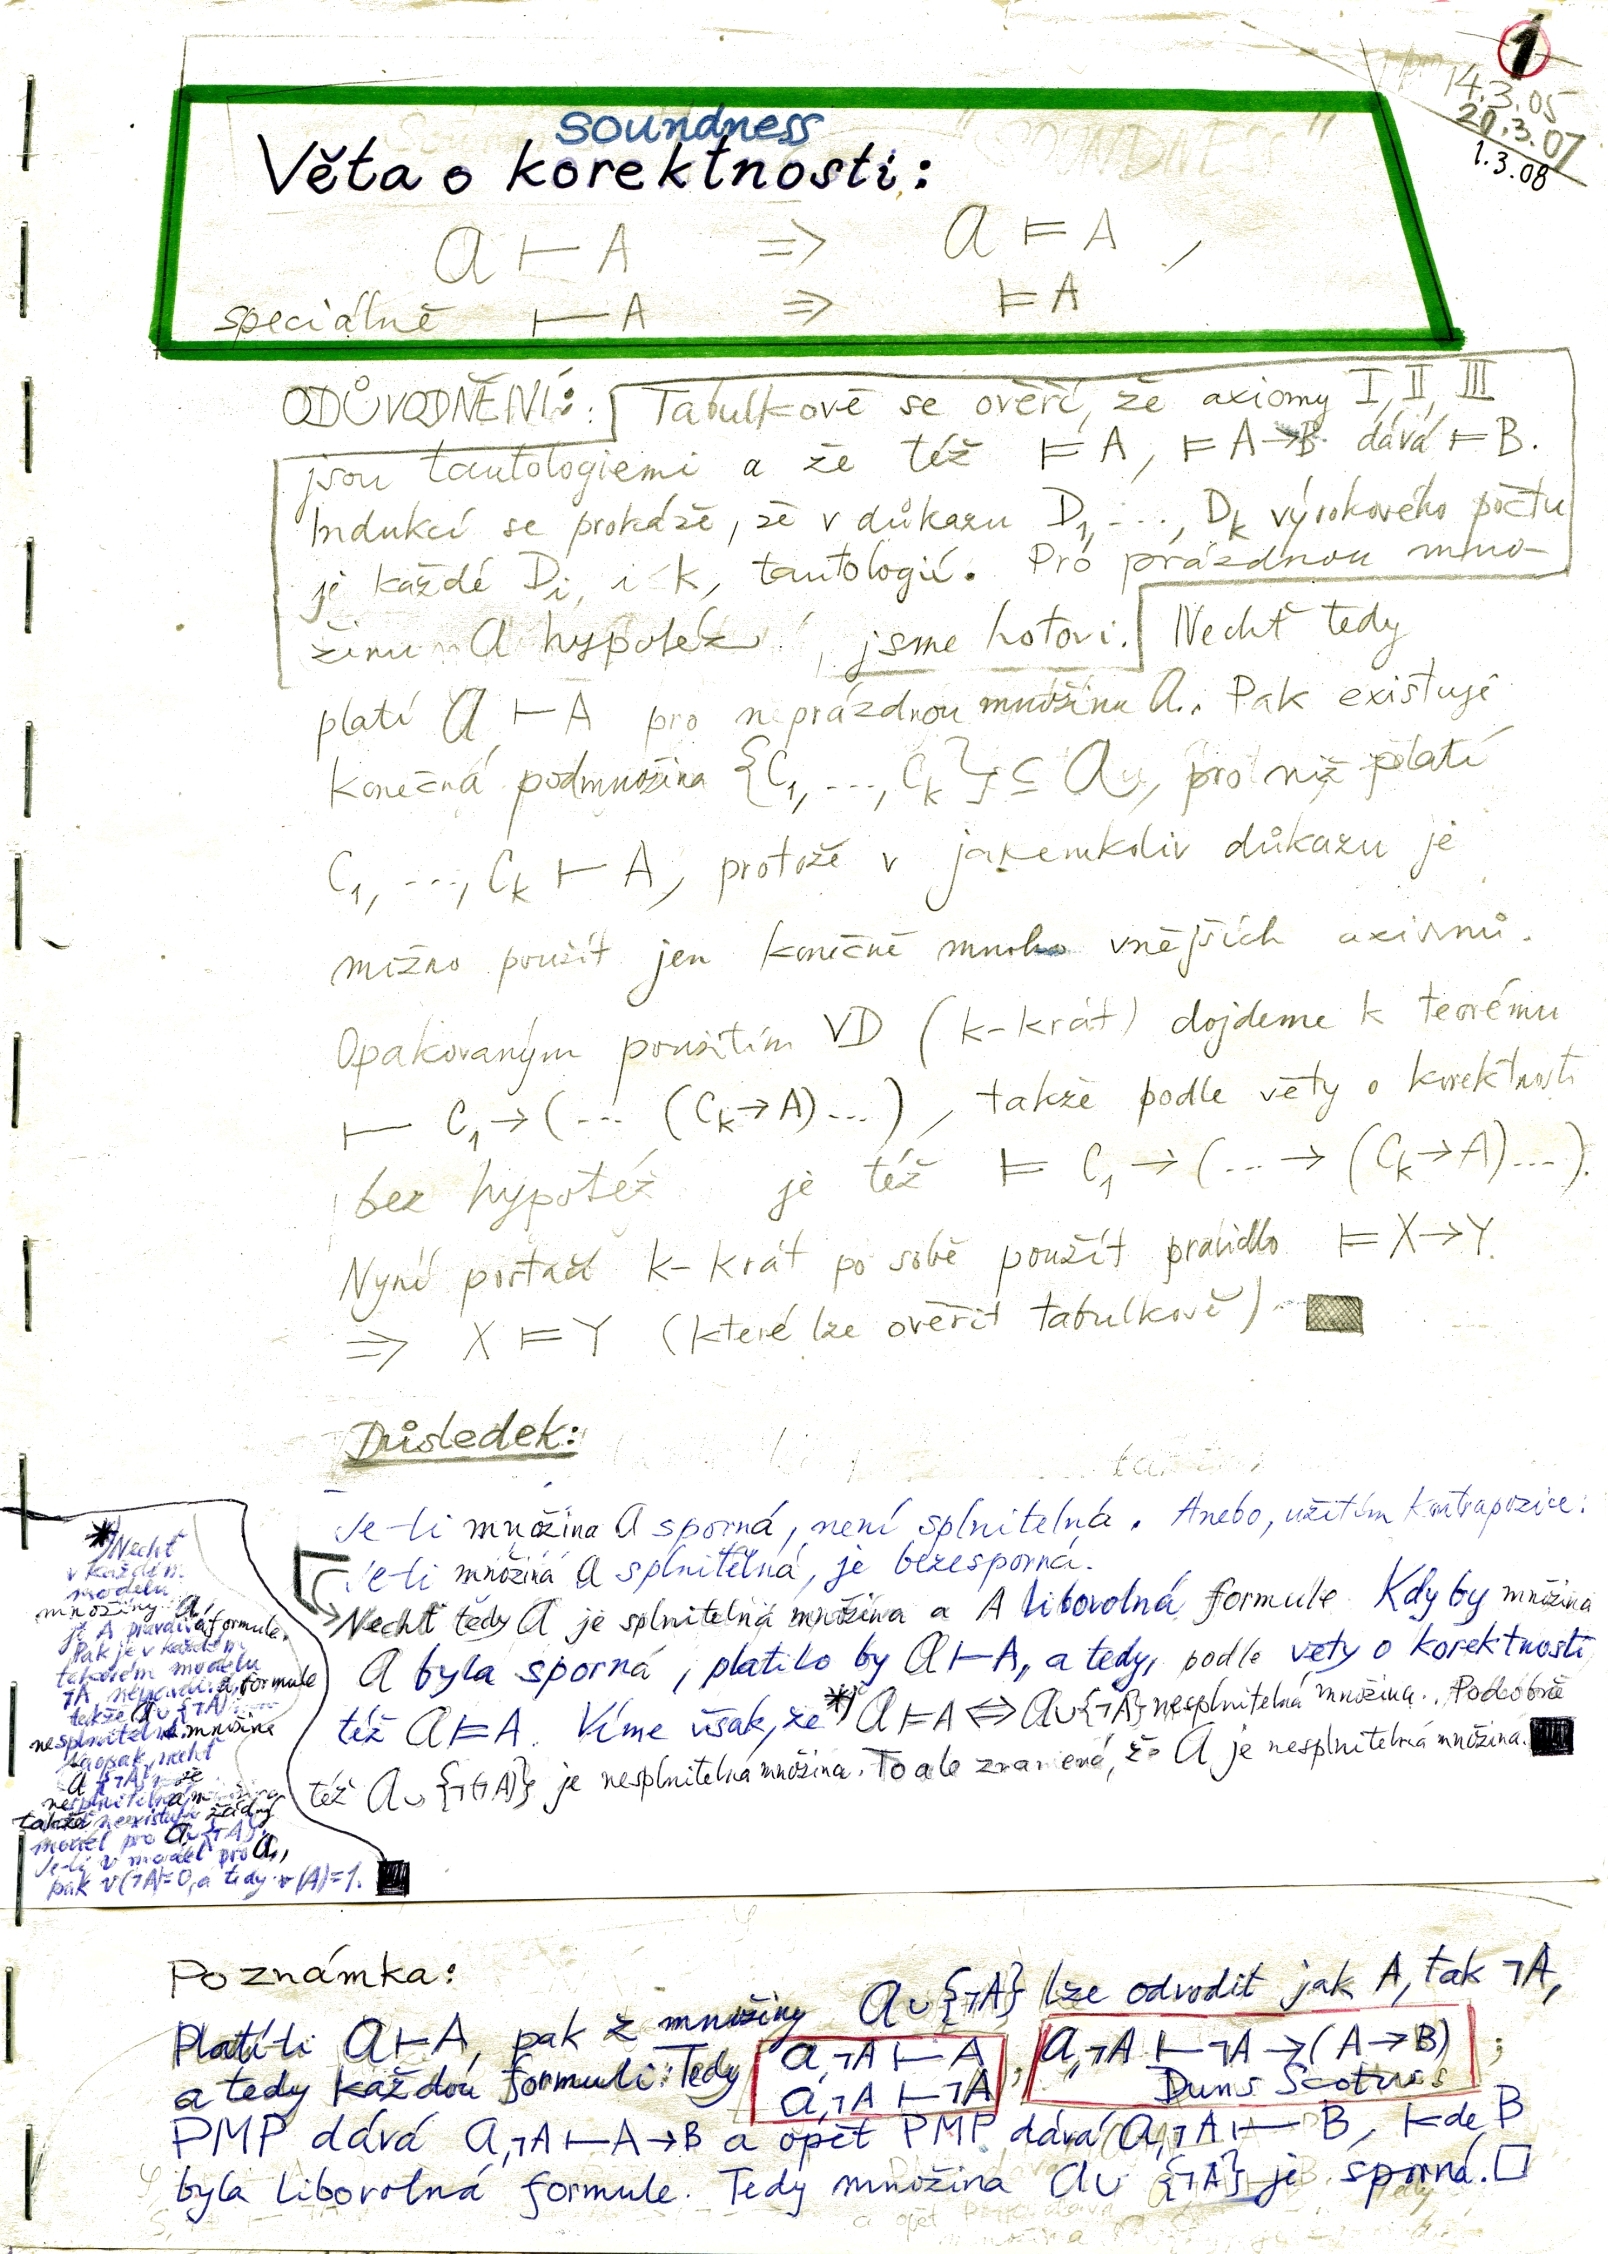 1
14.3.05
20.3.07
1.3.08
soundness
Věta o korektnosti:
𝒜 ⊢ A ⇒ 𝒜 ⊨ A ,
speciálně ⊢ A ⇒ ⊨ A
ODŮVODNĚNÍ: Tabulkově se ověří, že axiomy I, II, III
jsou tautologiemi a že též ⊨ A, ⊨ A→B dává ⊨ B.
Indukcí se prokáže, že v důkazu D₁, ..., Dₖ výrokového počtu
je každé Dᵢ, i ≤ k, tautologií. Pro prázdnou mno-
žinu 𝒜 hypotéz, jsme hotovi. Nechť tedy
platí 𝒜 ⊢ A pro neprázdnou množinu 𝒜. Pak existuje
konečná podmnožina {C₁, ..., Cₖ} ⊆ 𝒜, pro niž platí
C₁, ..., Cₖ ⊢ A, protože v jakémkoliv důkazu je
možno použít jen konečně mnoho vnějších axiomů.
Opakovaným použitím VD (k-krát) dojdeme k teorému
⊢ C₁→(... (Cₖ→A)...), takže podle věty o korektnosti
bez hypotéz je též ⊨ C₁→(...→(Cₖ→A)...).
Nyní postačí k-krát po sobě použít pravidlo ⊨ X→Y
⇒ X ⊨ Y (které lze ověřit tabulkově)
Důsledek:
Je-li množina 𝒜 sporná, není splnitelná. Anebo, užitím kontrapozice:
Je-li množina 𝒜 splnitelná, je bezesporná.
Nechť tedy 𝒜 je splnitelná množina a A libovolná formule. Kdyby množina
𝒜 byla sporná, platilo by 𝒜 ⊢ A, a tedy, podle věty o korektnosti
též 𝒜 ⊨ A. Víme však, že *) 𝒜 ⊨ A ⇔ 𝒜∪{¬A} nesplnitelná množina. Podobně
též 𝒜∪{¬(¬A)} je nesplnitelná množina. To ale znamená, že 𝒜 je nesplnitelná množina.
*) Nechť
v každém
modelu
množiny 𝒜,
je A pravdivá formule.
Pak je v každém
takovém modelu
¬A nepravdivá formule
takže 𝒜∪{¬A}
nesplnitelná množina
Naopak, nechť
𝒜∪{¬A} je
nesplnitelná množina
takže neexistuje žádný
model pro 𝒜∪{¬A}.
Je-li v model pro 𝒜,
pak v(¬A)=0, a tedy v(A)=1.
Poznámka:
Platí-li 𝒜 ⊢ A, pak z množiny 𝒜∪{¬A} lze odvodit jak A, tak ¬A,
a tedy každou formuli: Tedy 𝒜,¬A ⊢ A , 𝒜,¬A ⊢ ¬A→(A→B) ;
𝒜,¬A ⊢ ¬A Duns Scotus
PMP dává 𝒜,¬A ⊢ A→B a opět PMP dává 𝒜,¬A ⊢ B, kde B
byla libovolná formule. Tedy množina 𝒜∪{¬A} je sporná. □